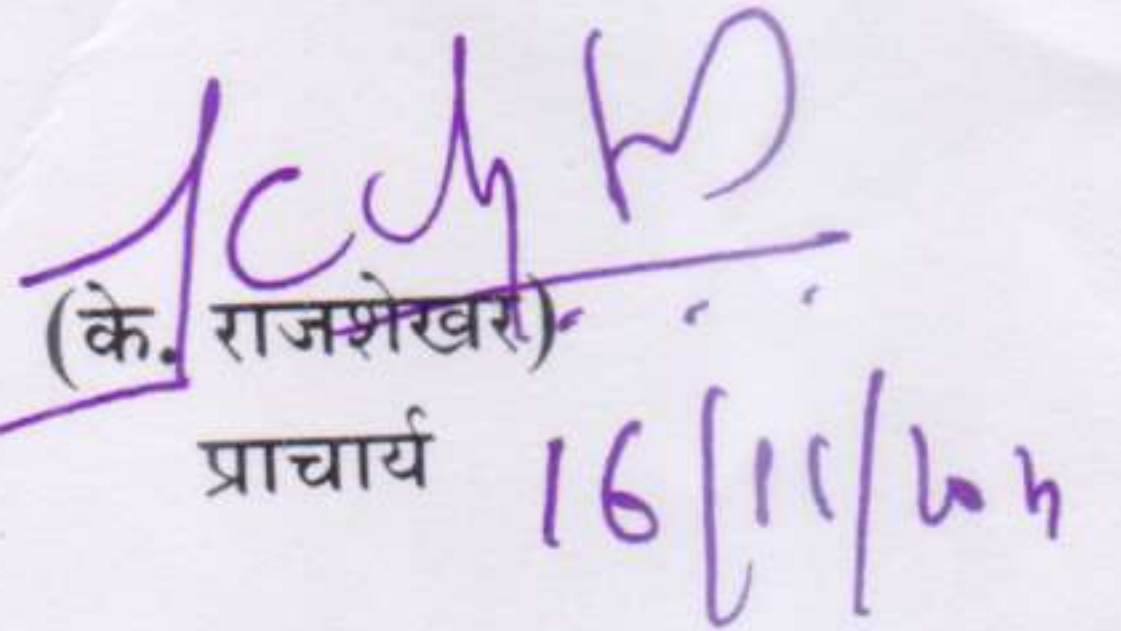 (के. राजशेखर)
प्राचार्य 16/11/